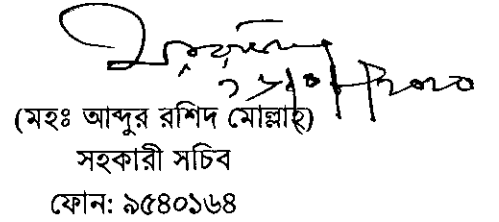 (মহঃ আব্দুর রশিদ মোল্লাহ)
সহকারী সচিব
ফোন: ৯৫৪০১৬৪